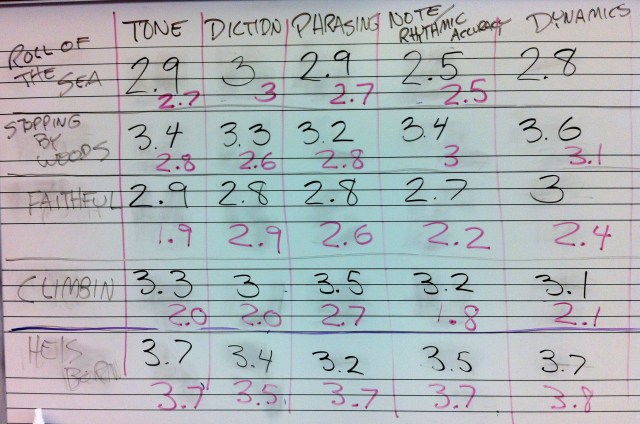 TONE DICTION PHRASING NOTE/ RHYTHMIC ACCURACY DYNAMICS
ROLL OF THE SEA 2.9 3 2.9 2.5 2.8
2.7 3 2.7 2.5
STOPPING BY WOODS 3.4 3.3 3.2 3.4 3.6
2.8 2.6 2.8 3 3.1
FAITHFUL 2.9 2.8 2.8 2.7 3
1.9 2.9 2.6 2.2 2.4
CLIMBIN 3.3 3 3.5 3.2 3.1
2.0 2.0 2.7 1.8 2.1
HE IS BORN 3.7 3.4 3.2 3.5 3.7
3.7 3.5 3.7 3.7 3.8